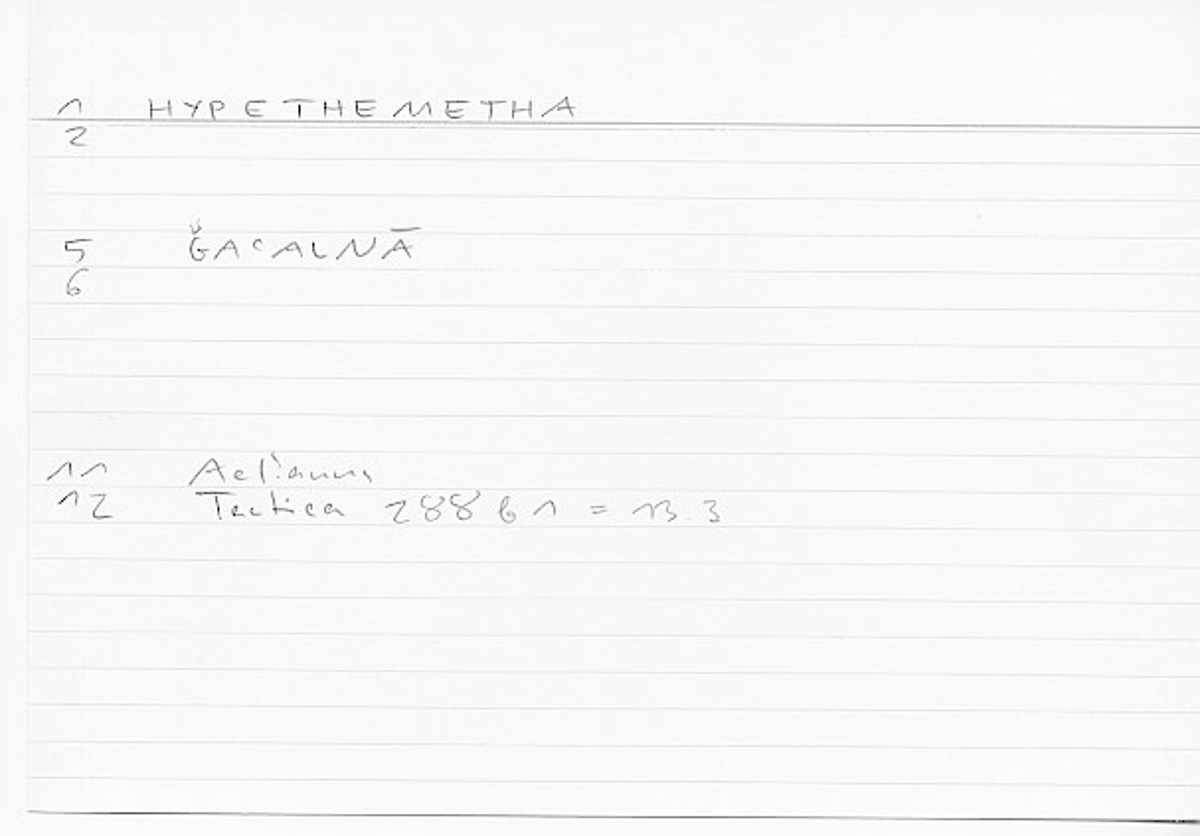 1 HYPETHEMETHA
2
5 ĞAᶜALNĀ
6
11 Aelianus
12 Tactica 288 6 1 = 13.3